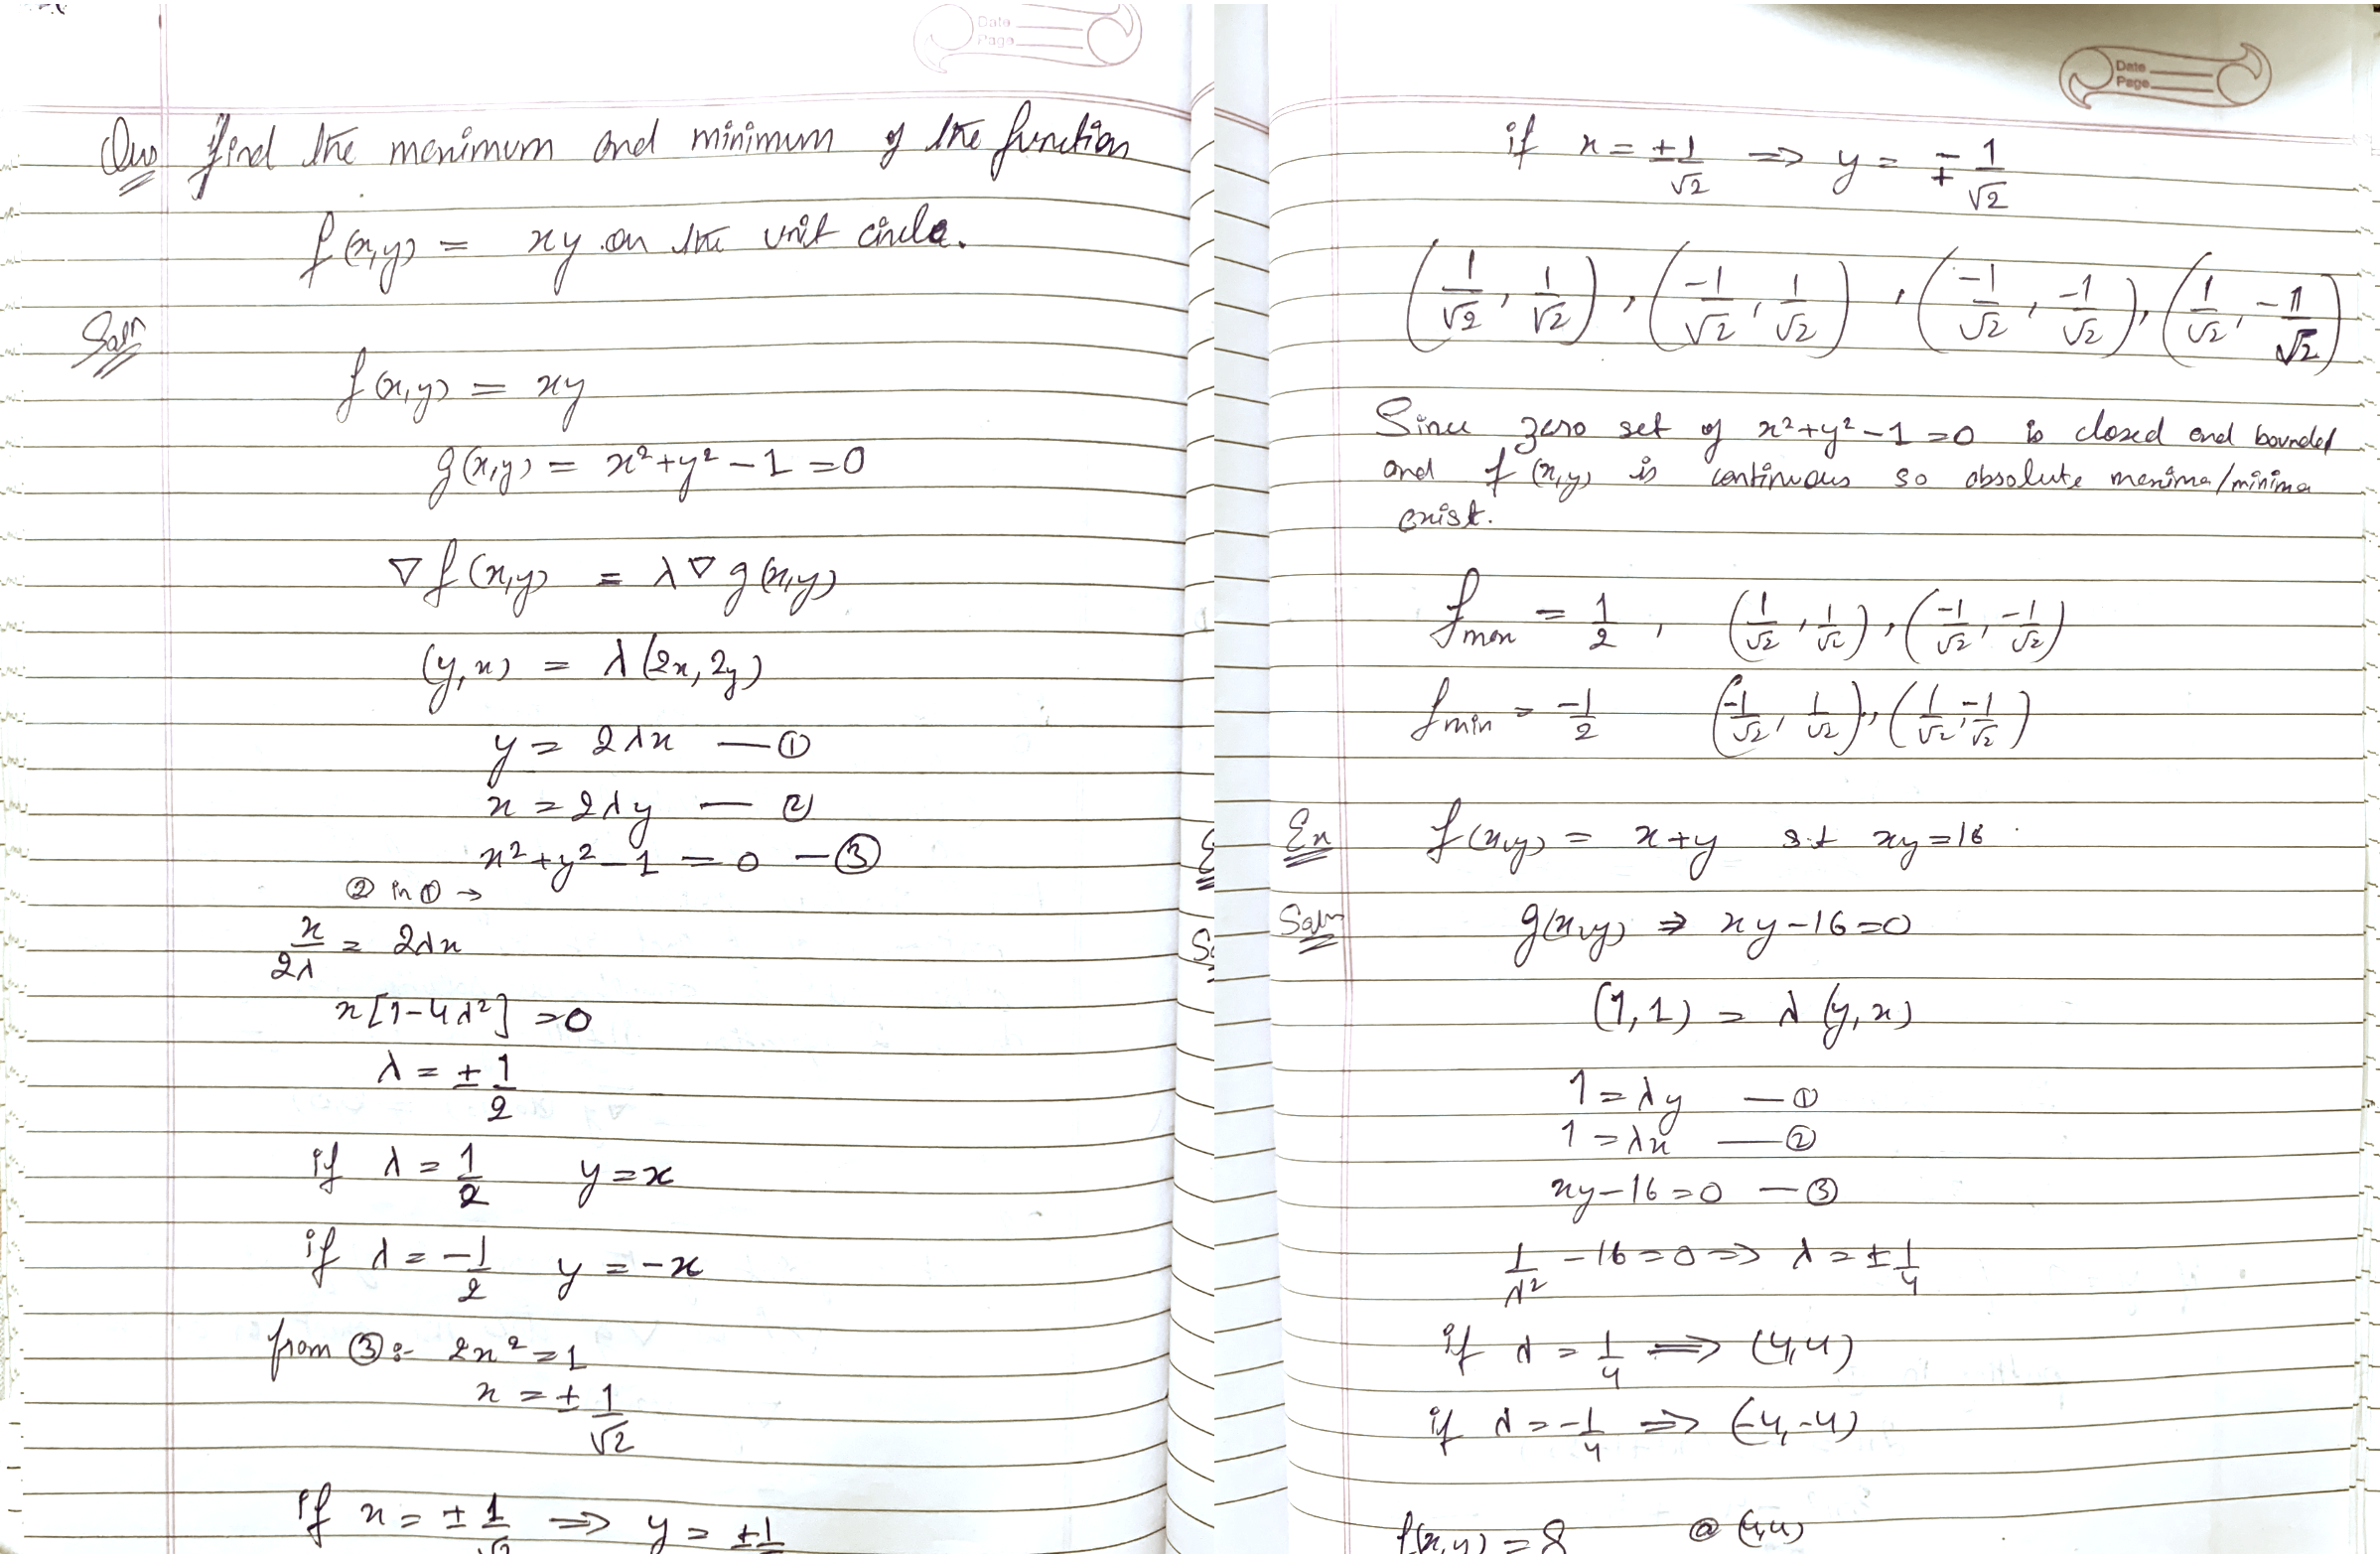 Date
Page
Ques find the maximum and minimum of the function
f(x,y) = xy on the unit circle.
Soln
f(x,y) = xy
g(x,y) = x² + y² - 1 = 0
∇f(x,y) = λ∇g(x,y)
(y,x) = λ(2x, 2y)
y = 2λx — ①
x = 2λy — ②
x² + y² - 1 = 0 — ③
② in ① →
x/2λ = 2λx
x[1-4λ²] = 0
λ = ± 1/2
if λ = 1/2 y = x
if λ = -1/2 y = -x
from ③ :- 2x² = 1
x = ± 1/√2
if x = ± 1/√2 ⇒ y = ±1
Date
Page
if x = ±1/√2 ⇒ y = ∓ 1/√2
(1/√2, 1/√2), (-1/√2, 1/√2), (-1/√2, -1/√2), (1/√2, -1/√2)
Since zero set of x²+y²-1=0 is closed and bounded
and f(x,y) is continuous so absolute maxima/minima
exist.
fmax = 1/2, (1/√2, 1/√2), (-1/√2, -1/√2)
fmin = -1/2 (-1/√2, 1/√2), (1/√2, -1/√2)
Ex f(x,y) = x+y s.t xy=16
Soln g(x,y) ⇒ xy-16=0
(1,1) = λ(y,x)
1 = λy — ①
1 = λx — ②
xy-16=0 — ③
1/λ² - 16 = 0 ⇒ λ = ± 1/4
if λ = 1/4 ⇒ (4,4)
if λ = -1/4 ⇒ (-4,-4)
f(x,y) = 8 @ (4,4)